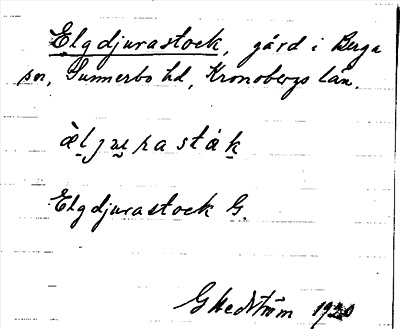 Elgdjurastock, gård i Berga
sn, Sunnerbo hd, Kronobergs län.
Elgdjurastock G.
G Hedström 1920